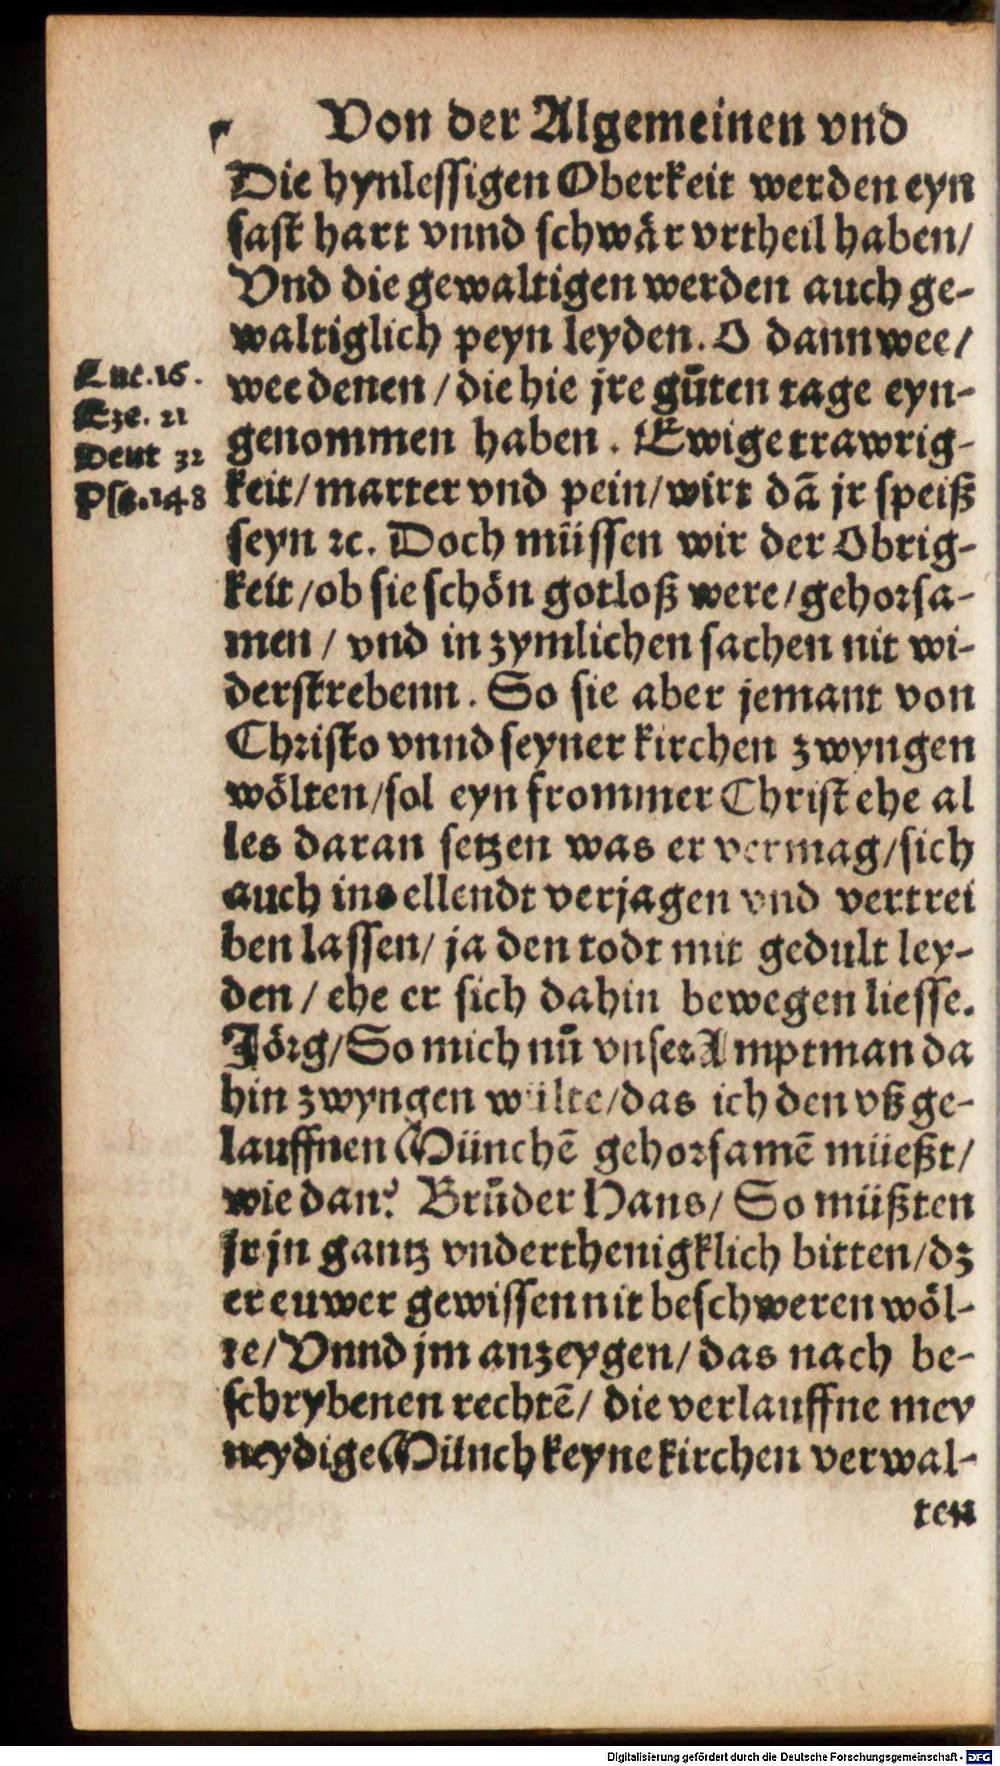 Von der Algemeinen vnd
Die hynlessigen Oberkeit werden eyn
fast hart vnnd schwår vrtheil haben/
Vnd die gewaltigen werden auch ge-
waltiglich peyn leyden. O dann wee/
Luc. 16.
wee denen / die hie jre gůten tage eyn-
Eze. 21
genommen haben. Ewige trawrig-
Deut 32
keit/ marter vnd pein/ wirt dā jr speiß
Psa. 148
seyn ꝛc. Doch müssen wir der Obrig-
keit / ob sie schön gotloß were / gehorsa-
men / vnd in zymlichen sachen nit wi-
derstrebenn. So sie aber jemant von
Christo vnnd seyner kirchen zwyngen
wölten/ sol eyn frommer Christ ehe al
les daran setzen was er vermag/ sich
auch ins ellendt verjagen vnd vertrei
ben lassen/ ja den todt mit gedult ley-
den / ehe er sich dahin bewegen liesse.
Jörg/ So mich nů vnser Amptman da
hin zwyngen wülte/ das ich den vß ge-
lauffnen Münchē gehorsamē müeßt/
wie dan? Brůder Hans/ So müßten
jr jn gantz vnderthenigklich bitten/ dz
er euwer gewissen nit beschweren wöl-
te/ Vnnd jm anzeygen/ das nach be-
schrybenen rechtē/ die verlauffne mey
neydige Münch keyne kirchen verwal-
ten
Digitalisierung gefördert durch die Deutsche Forschungsgemeinschaft - DFG